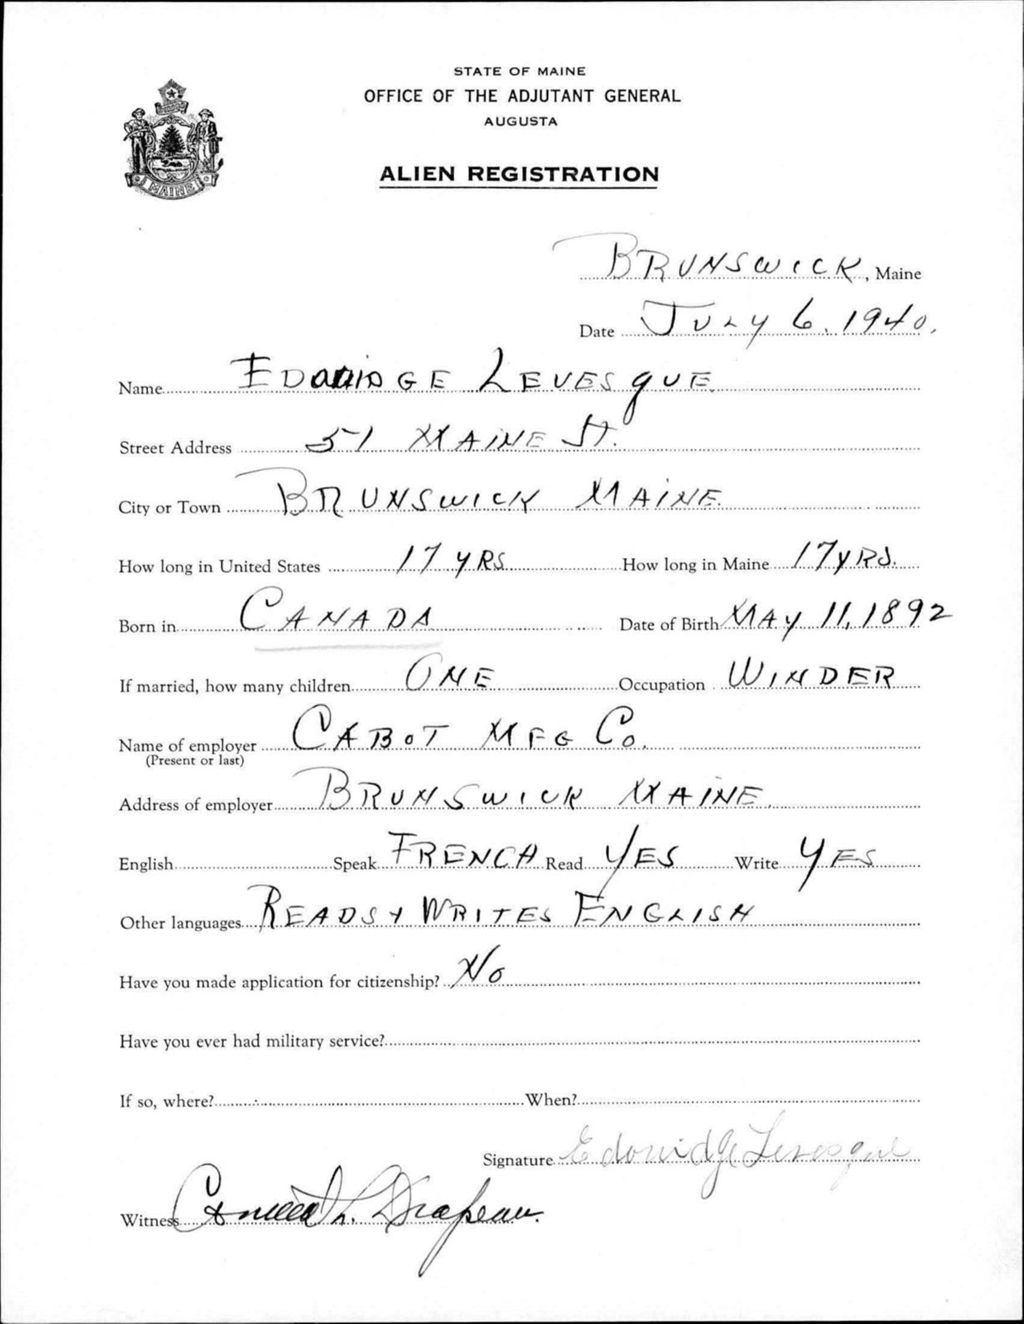 STATE OF MAINE
OFFICE OF THE ADJUTANT GENERAL
AUGUSTA
MAINE
ALIEN REGISTRATION
BRUNSWICK, Maine
Date JULY 6, 1940.
Name LEVESQUE
Street Address 51 MAINE ST.
City or Town BRUNSWICK MAINE
How long in United States 17 YRS How long in Maine 17 YRS.
Born in CANADA Date of Birth MAY 11, 1892
If married, how many children ONE Occupation WINDER
Name of employer CABOT MFG Co.
(Present or last)
Address of employer BRUNSWICK MAINE
English Speak FRENCH Read YES Write YES
Other languages READS + WRITES ENGLISH
Have you made application for citizenship? No
Have you ever had military service?
If so, where? When?
Signature Edowidge Levesque
Witness L. Drapeau.